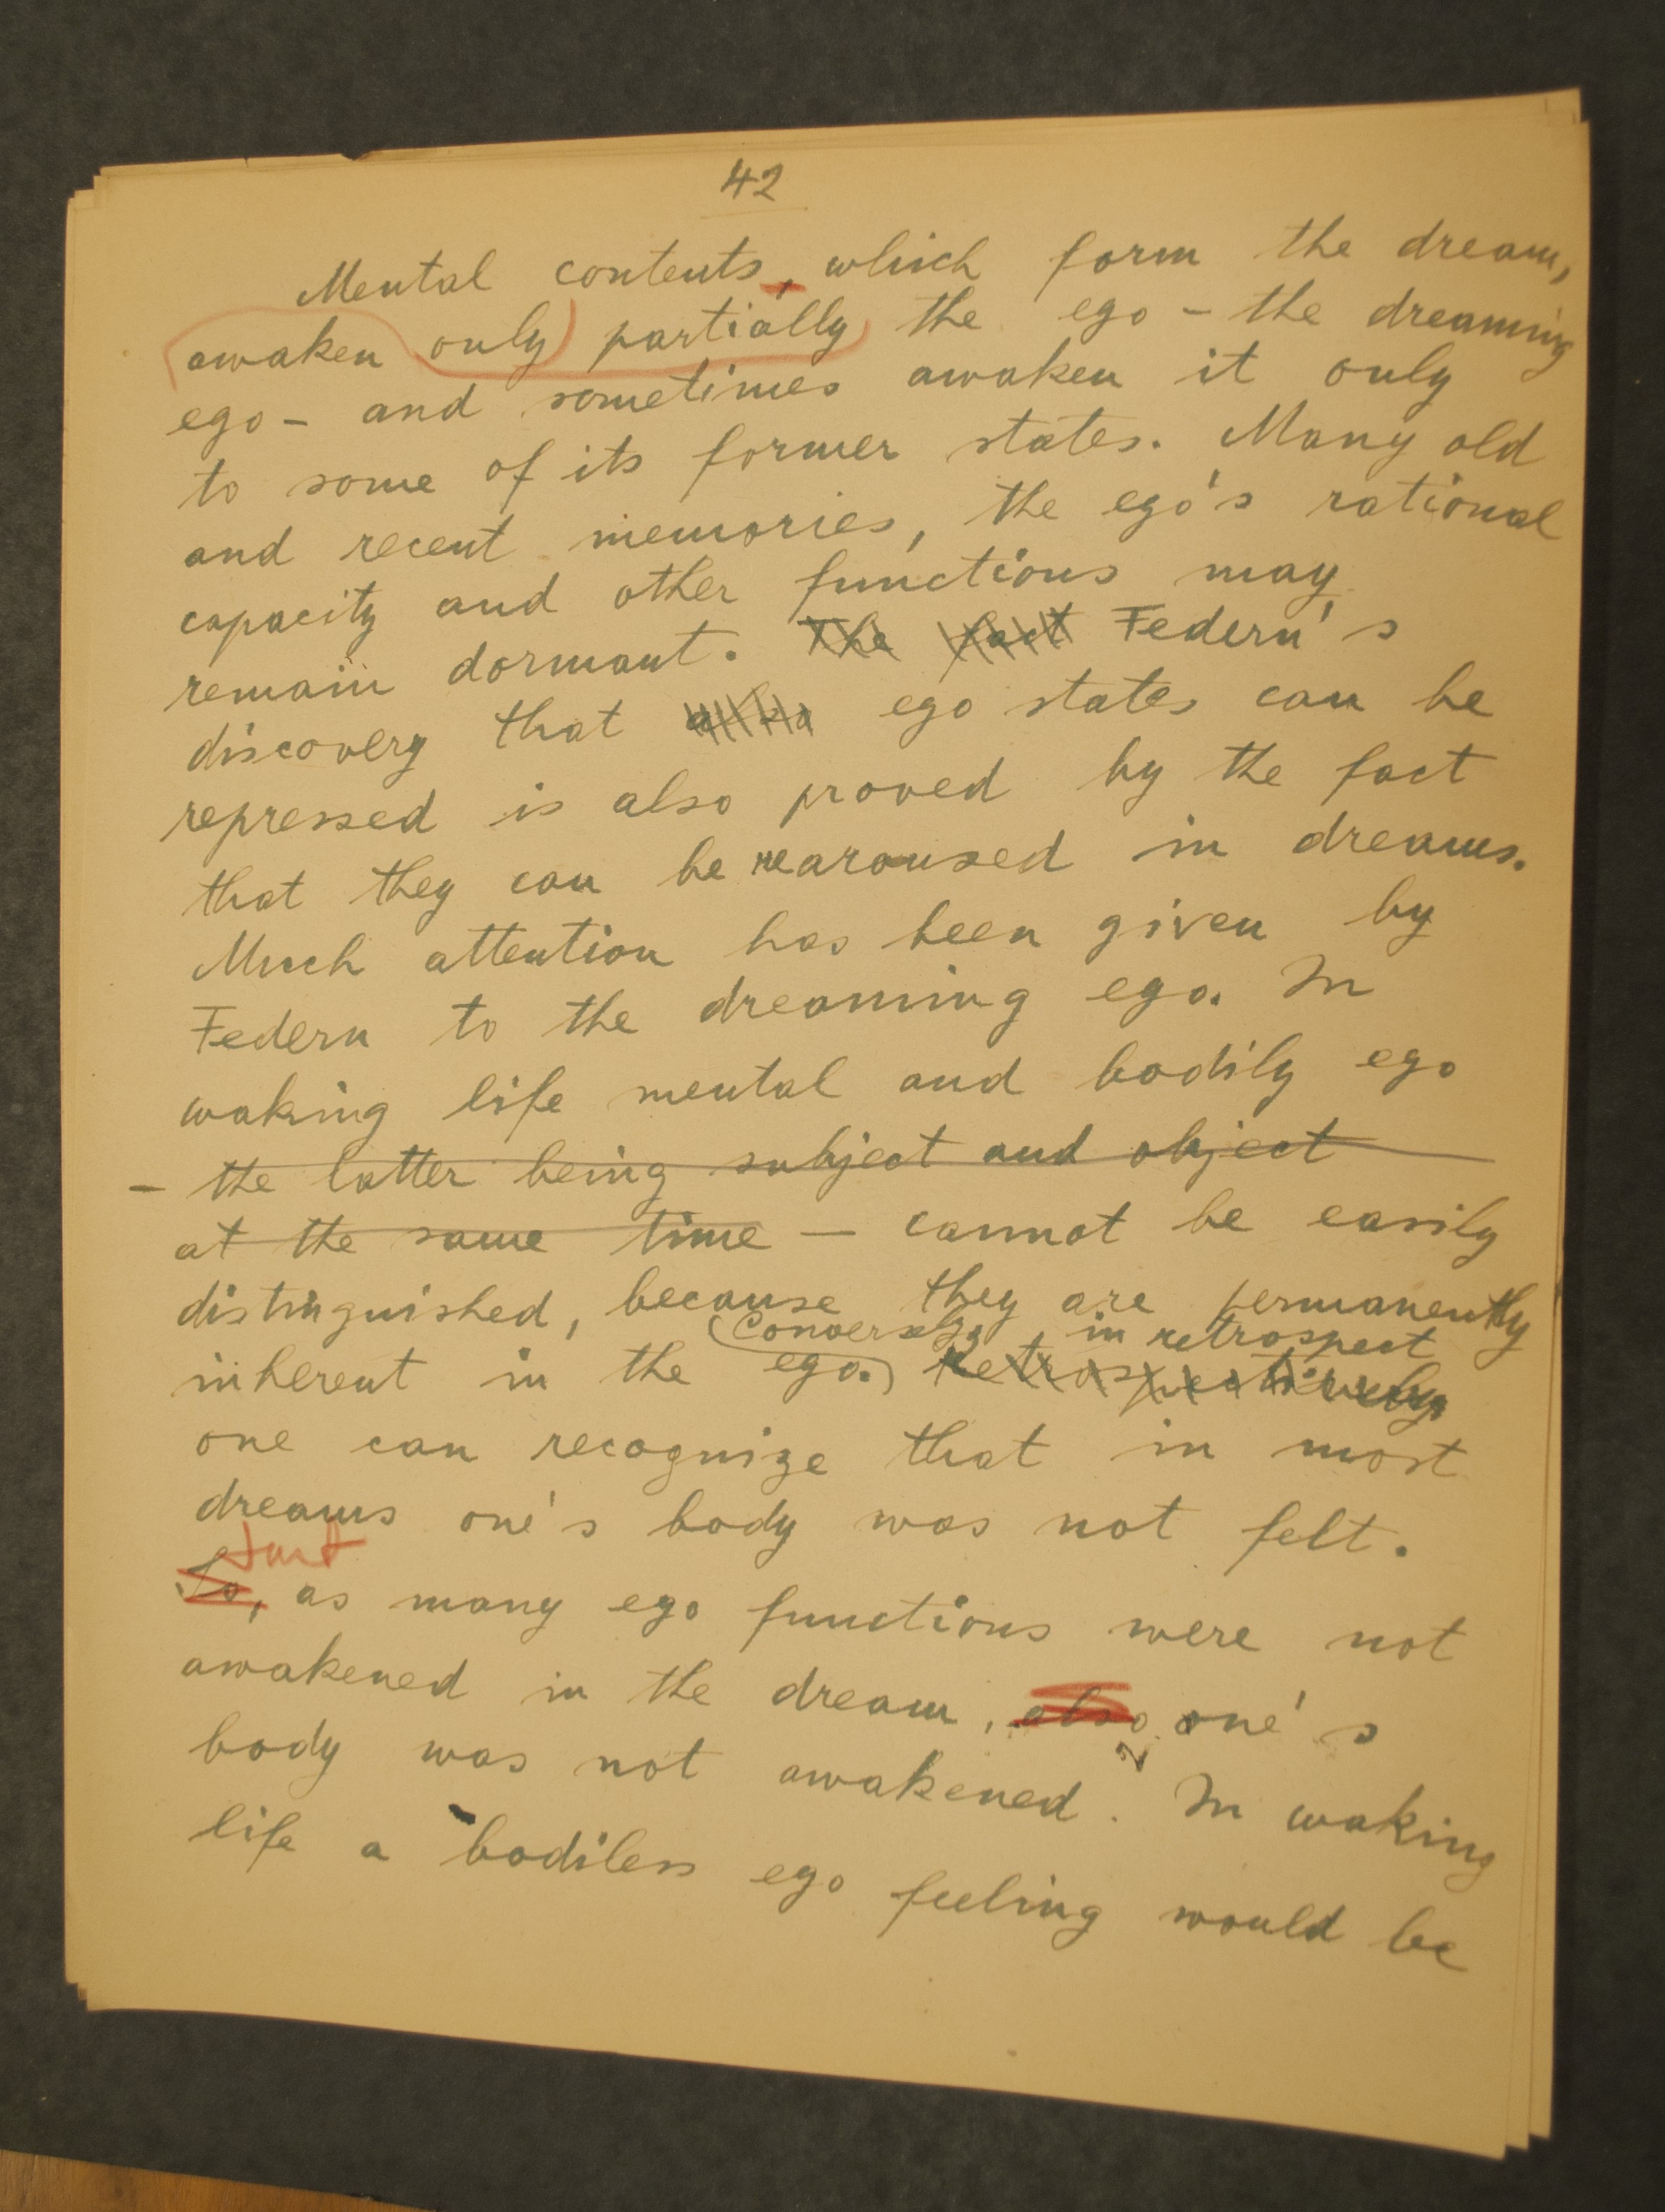 42
Mental contents, which form the dream,
awaken only partially the ego - the dreaming
ego - and sometimes awaken it only
to some of its former states. Many old
and recent memories, the ego's rational
capacity and other functions may
remain dormant. The fact Federn's
discovery that ego states can be
repressed is also proved by the fact
that they can be rearoused in dreams.
Much attention has been given by
Federn to the dreaming ego. In
waking life mental and bodily ego
- the latter being subject and object
at the same time - cannot be easily
distinguished, because they are permanently
Conversely, in retrospect
inherent in the ego. Retrospectively
one can recognize that in most
dreams one's body was not felt.
Just
So, as many ego functions were not
awakened in the dream, also one's
body was not awakened. In waking
life a bodiless ego feeling would be